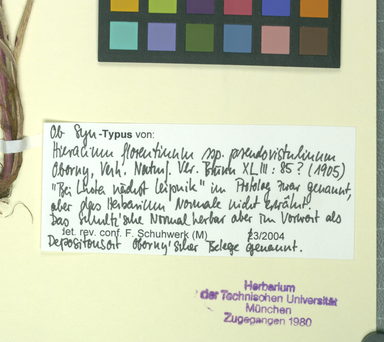 Ob Syn-Typus von:
Hieracium florentinum ssp. pseudovistulinum
Oborny, Verh. Naturf. Ver. Brünn XLIII: 85? (1905)
"Bei Lhota nächst Leipnik" im Protolog zwar genannt,
aber das Herbarium Normale nicht erwähnt.
Das Schultz'sche Normalherbar aber im Vorwort als
det. rev. conf. F. Schuhwerk (M) 23/2004
Depositionsort Oborny'scher Belege genannt.
Herbarium
der Technischen Universität
München
Zugegangen 1980